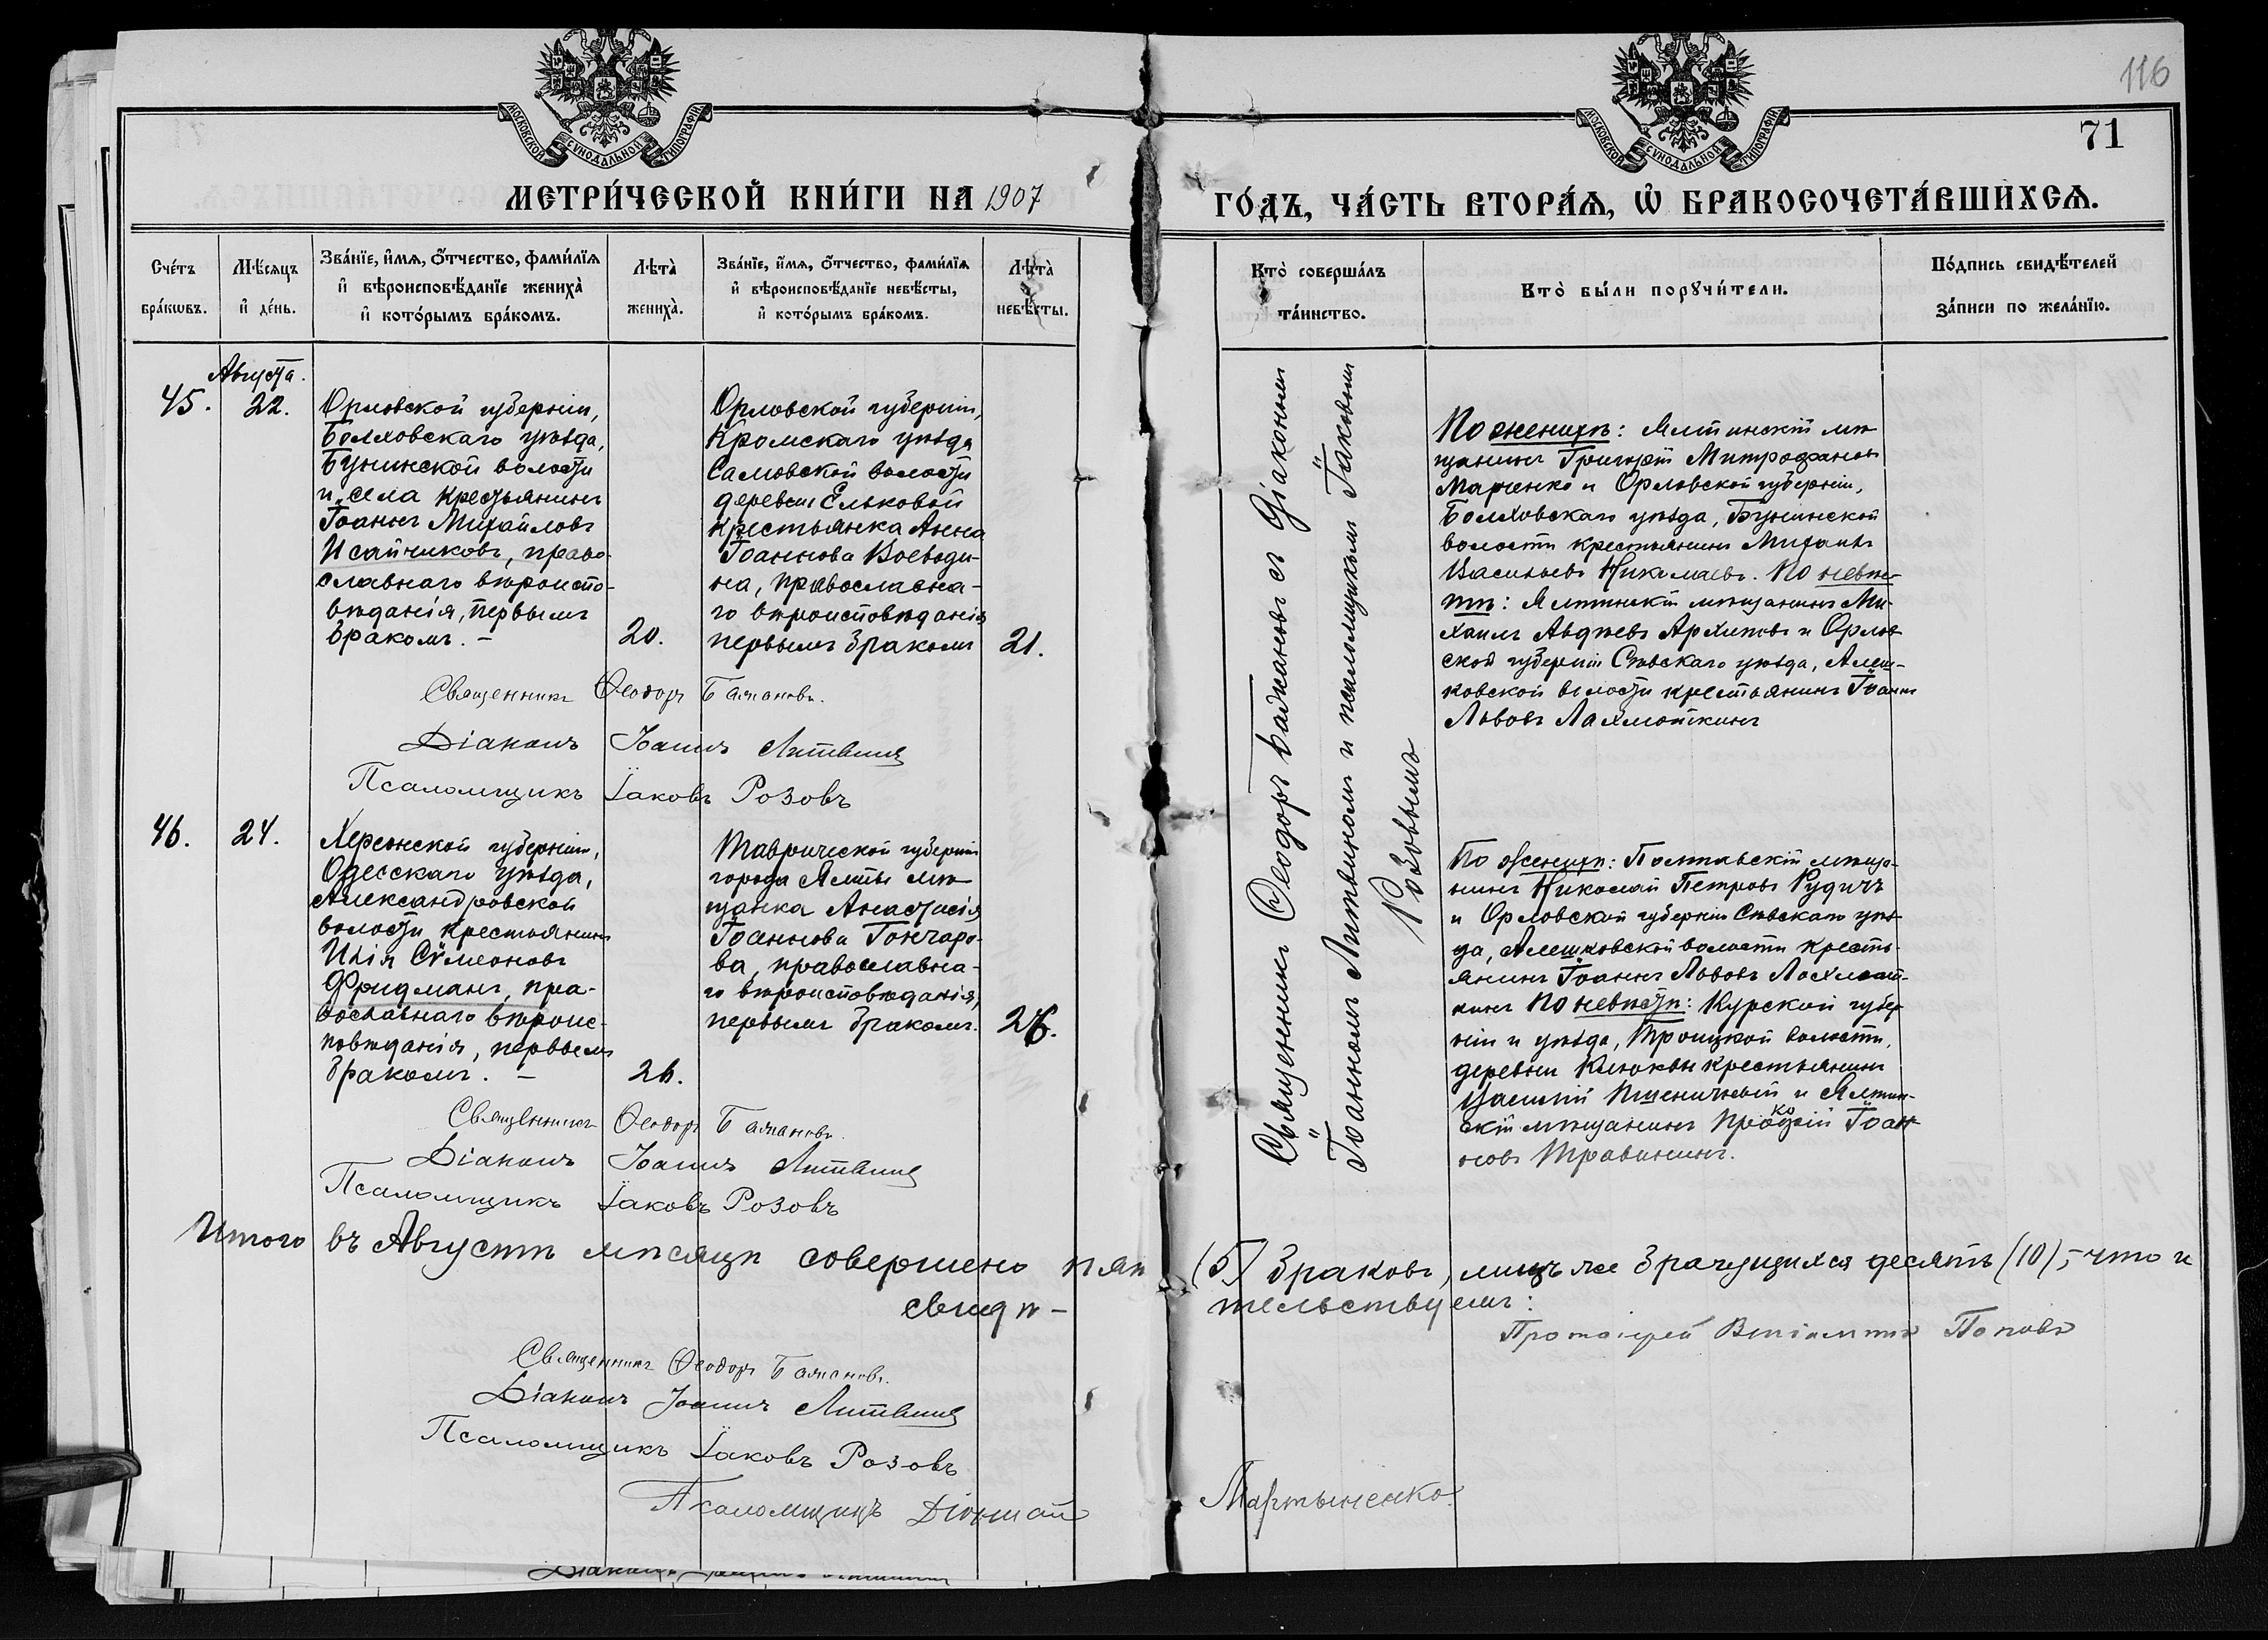 116
71
МОСКОВСКОЙ СУНОДАЛЬНОЙ ТИПОГРАФІИ
МОСКОВСКОЙ СУНОДАЛЬНОЙ ТИПОГРАФІИ
МЕТРИ́ЧЕСКОЙ КНИ́ГИ НА 1907
ГО́ДЪ, ЧА́СТЬ ВТОРА́Я, Ѡ БРАКОСОЧЕТА́ВШИХСЯ.
Сче́тъ
бра́кѡвъ.
Мѣ́сяцъ
и҆ де́нь.
Зва́нїе, и҆́мя, ѻ҆́тчество, фами́лїя
и҆ вѣроисповѣ́данїе жениха̀
и҆ кото́рымъ бра́комъ.
Лѣта̀
жениха̀.
Зва́нїе, и҆́мя, ѻ҆́тчество, фами́лїя
и҆ вѣроисповѣ́данїе невѣ́сты,
и҆ кото́рымъ бра́комъ.
Лѣта̀
невѣ́сты.
Кто̀ соверша́лъ
та́инство.
Кто̀ бы́ли порꙋчи́тели.
По́дпись свидѣ́телей
за́писи по жела́нїю.
Августа.
45.
22.
Орловской губерніи,
Болховскаго уѣзда,
Бунинской волости
и села крестьянинъ
Іоаннъ Михайловъ
Исайчиковъ, право-
славнаго вѣроиспо-
вѣданія, первымъ
бракомъ. –
20.
Орловской губерніи,
Кромскаго уѣзда
Салововской волости
деревни Ельковой
крестьянка Анна
Іоаннова Воеводи-
на, православна-
го вѣроисповѣданія
первымъ бракомъ
21.
Священникъ Ѳеодоръ Бажановъ съ Діакономъ
Іоанномъ Литвиномъ и псаломщикомъ Іаковомъ
Розовымъ
По женихѣ: Ялтинскій мѣ-
щанинъ Григорій Митрофановъ
Марченко и Орловской губерніи,
Болховскаго уѣзда, Бунинской
волости крестьянинъ Михаилъ
Васильевъ Николаевъ. По невѣс-
тѣ: Ялтинскій мѣщанинъ Ми-
хаилъ Авдѣевъ Архиповъ и Орлов-
ской губерніи Сѣвскаго уѣзда, Алеш-
ковской волости крестьянинъ Іоаннъ
Львовъ Лахмоткинъ
Священникъ Ѳеодоръ Бажановъ.
Діаконъ Іоаннъ Литвинъ
Псаломщикъ Іаковъ Розовъ
46.
24.
Херсонской губерніи,
Одесскаго уѣзда,
Александровской
волости крестьянинъ
Илія Сѵмеоновъ
Фридманъ, пра-
вославнаго вѣроис-
повѣданія, первымъ
бракомъ. –
26.
Таврической губерніи
города Ялты мѣ-
щанка Анастасія
Іоаннова Гончаро-
ва, православна-
го вѣроисповѣданія,
первымъ бракомъ.
26.
По женихѣ: Полтавскій мѣща-
нинъ Николай Петровъ Рудичъ
и Орловской губерніи Сѣвскаго уѣз-
да, Алешковской волости кресть-
янинъ Іоаннъ Львовъ Лохмот-
кинъ По невѣстѣ: Курской губер-
ніи и уѣзда, Троицкой волости,
деревни Клюквы крестьянинъ
Василій Пшеничный и Ялтин-
скій мѣщанинъ Прокофій Іоан-
новъ Травининъ.
Священникъ Ѳеодоръ Бажановъ.
Діаконъ Іоаннъ Литвинъ
Псаломщикъ Іаковъ Розовъ
Итого въ Августѣ мѣсяцѣ совершено пять (5) браковъ, лицъ же брачущихся десять (10), – что и
свидѣ-
тельствуемъ:
Протоіерей Веніаминъ Поповъ
Священникъ Ѳеодоръ Бажановъ.
Діаконъ Іоаннъ Литвинъ
Псаломщикъ Іаковъ Розовъ
Псаломщикъ Діонисій Мартыненко.